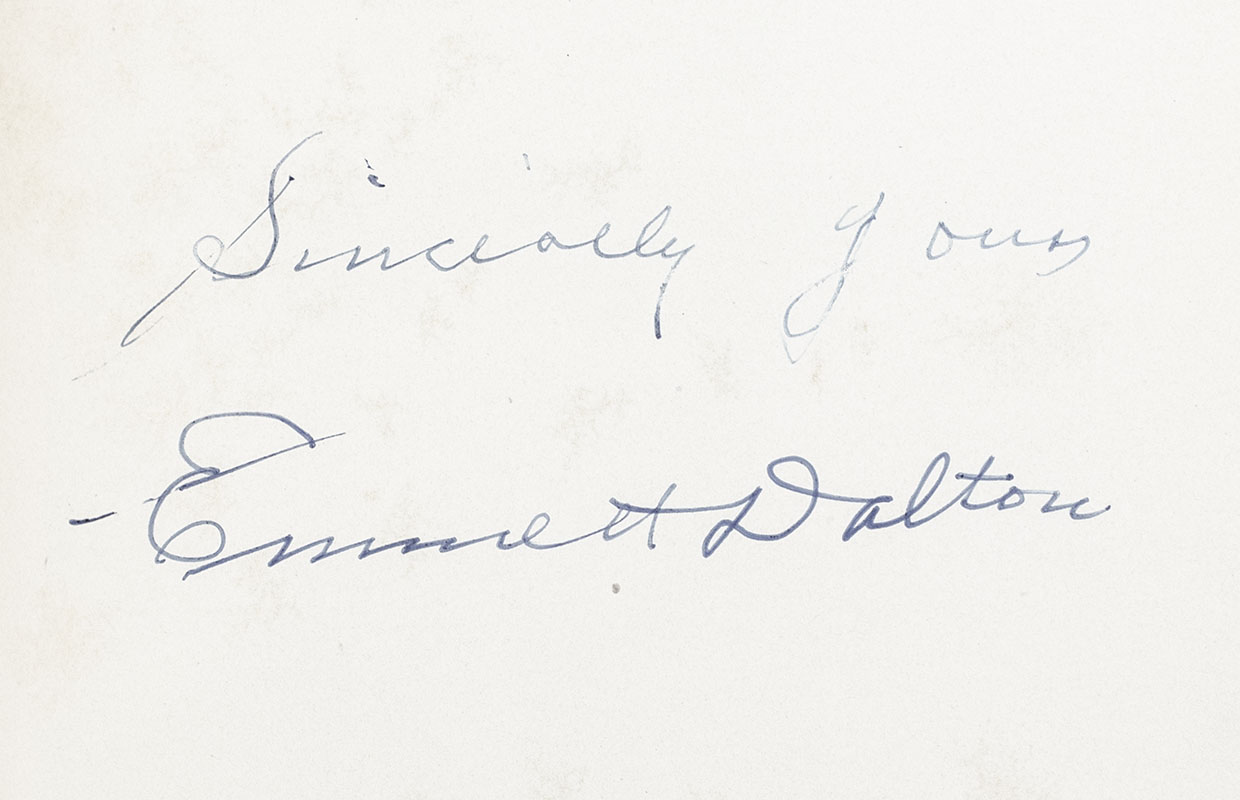 Sincerely yours
- Emmett Dalton